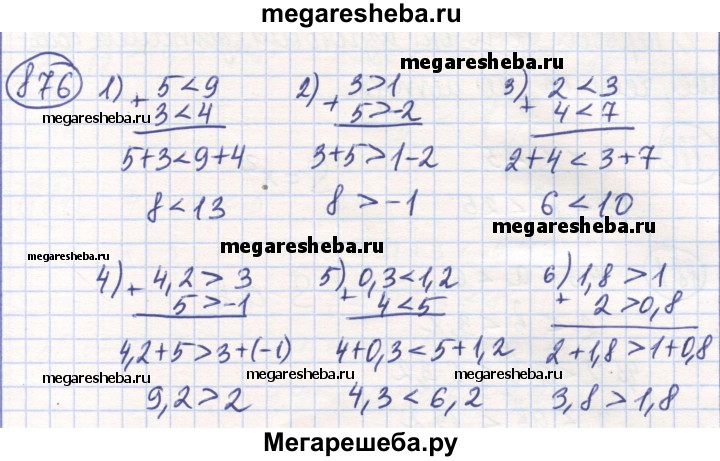 megaresheba.ru
876 1) 5<9 2) 3>1 3) 2<3
megaresheba.ru
+ 3<4 + 5>-2 + 4<7
megaresheba.ru
5+3<9+4 3+5>1-2 2+4<3+7
8<13 8>-1 6<10
megaresheba.ru
megaresheba.ru
megaresheba.ru
4) 4,2>3 5) 0,3<1,2 6) 1,8>1
+ 5>-1 + 4<5 + 2>0,8
megaresheba.ru
4,2+5>3+(-1) 4+0,3<5+1,2 2+1,8>1+0,8
megaresheba.ru
megaresheba.ru
9,2>2 4,3<6,2 3,8>1,8
Мегарешеба.ру